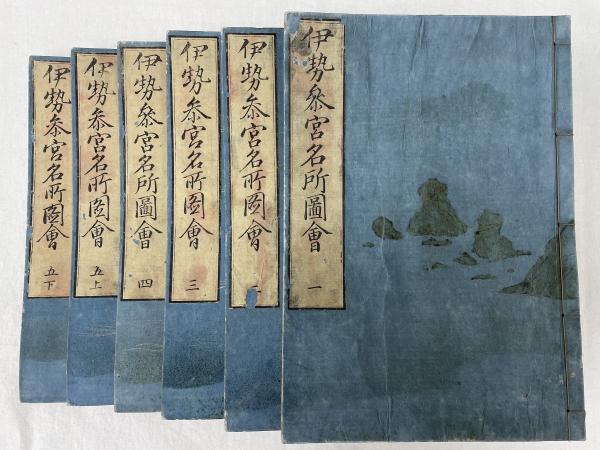 伊勢參宮名所圖會 一
伊勢参宮名所圖會
伊勢参宮名所圖會 三
伊勢參宮名所圖會 四
伊勢参宮名所圖會 五上
伊勢参宮名所圖會 五下